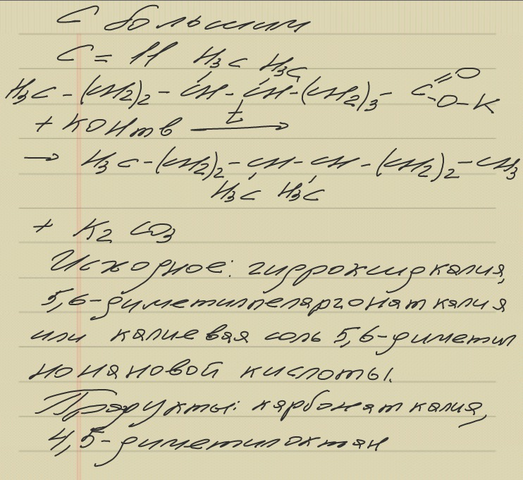 С большим
C = 11 H₃C H₃C
H₃C - (CH₂)₂ - CH - CH - (CH₂)₃ - C = O - O - K
+ KOHтв t →
→ H₃C - (CH₂)₂ - CH - CH - (CH₂)₂ - CH₃
H₃C H₃C
+ K₂CO₃
Исходное: гидроксид калия,
5,6-диметилпеларгонат калия
или калиевая соль 5,6-диметил
нонановой кислоты.
Продукты: карбонат калия,
4,5-диметилоктан